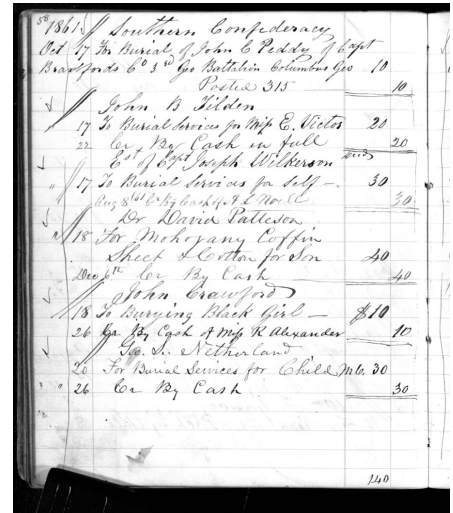 58
1861 Southern Confederacy
Oct 17 For Burial of John C Peddy of Capt
Co 3rd Geo Battalion Columbus Geo 10
Posted 315 10
John B Tilden
17 To Burial Services for Miss E. Victor 20
22 Cr By Cash in full 20
Est of Capt Joseph Wilkerson
" 17 To Burial Services for Self — 30
Aug 8 Cr By Cash of A L 30
Dr David Patteson
" 18 For Mohogany Coffin
Sheet & Cotton for Son 40
Dec 6th Cr By Cash 40
John Crawford
18 To Burying Black Girl — $10
26 Cr By Cash of Miss R Alexander 10
Geo. S. Netherland
20 For Burial Services for Child 30
" 26 Cr By Cash 30
140